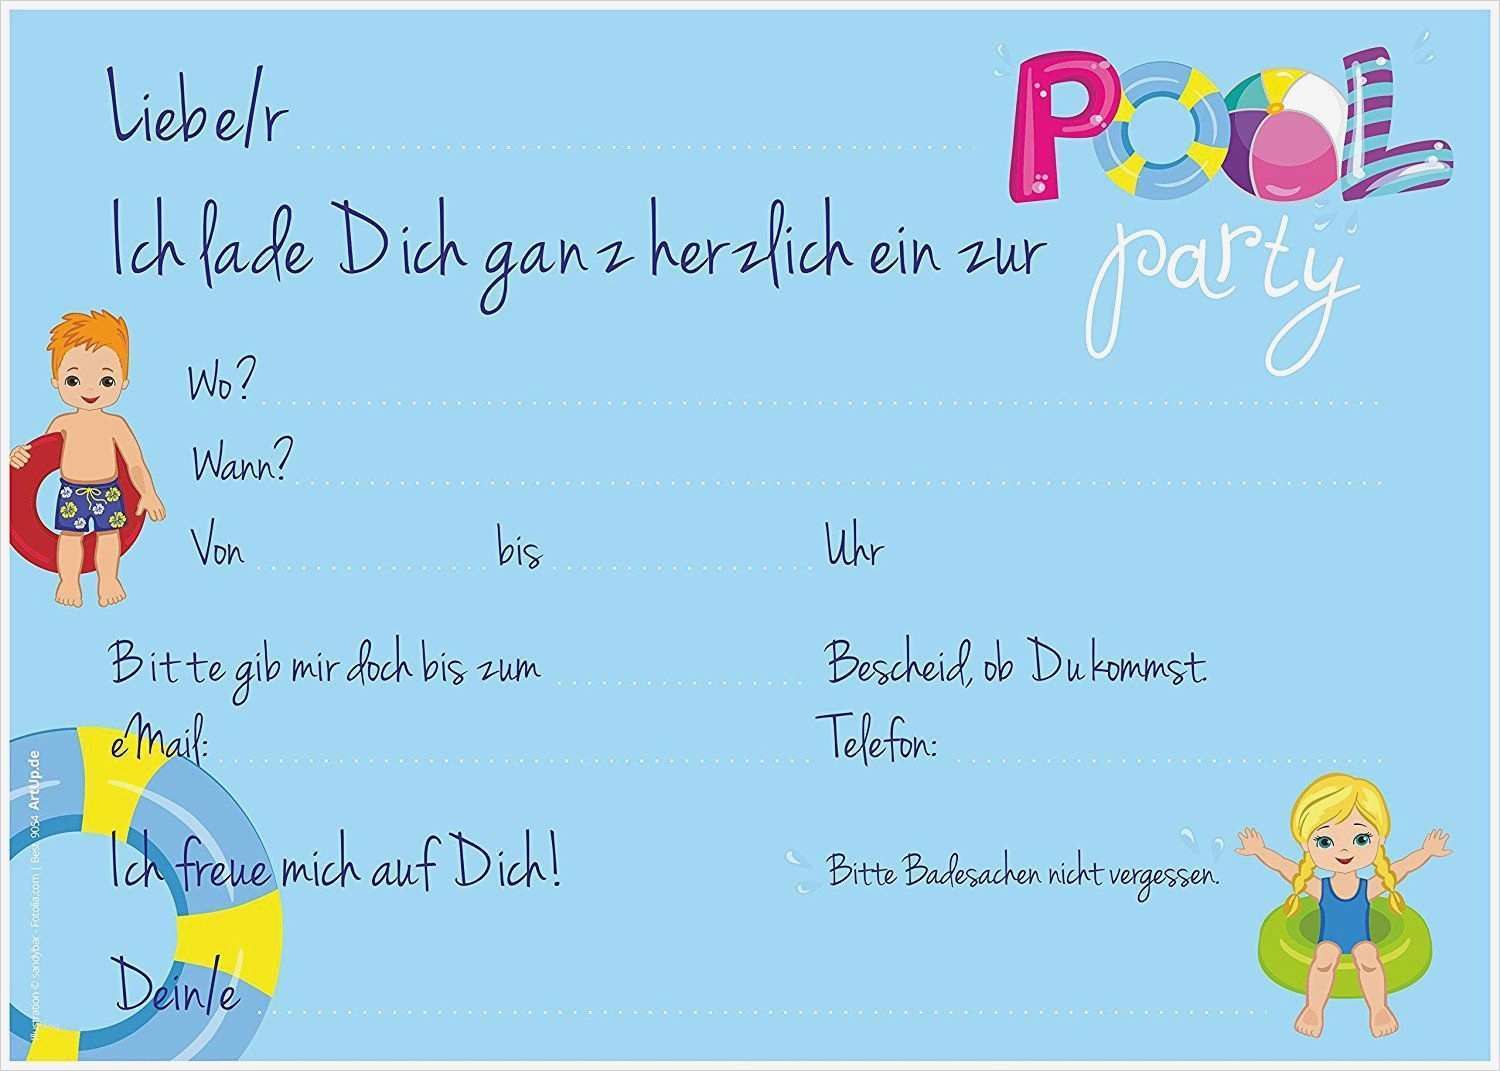 Liebe/r
Ich lade Dich ganz herzlich ein zur
POOL
party
Wo?
Wann?
Von bis Uhr
Bitte gib mir doch bis zum Bescheid, ob Du kommst.
eMail: Telefon:
Ich freue mich auf Dich!
Bitte Badesachen nicht vergessen.
Dein/e
Illustration © sandybar - Fotolia.com | Best. 9054 ArtUp.de